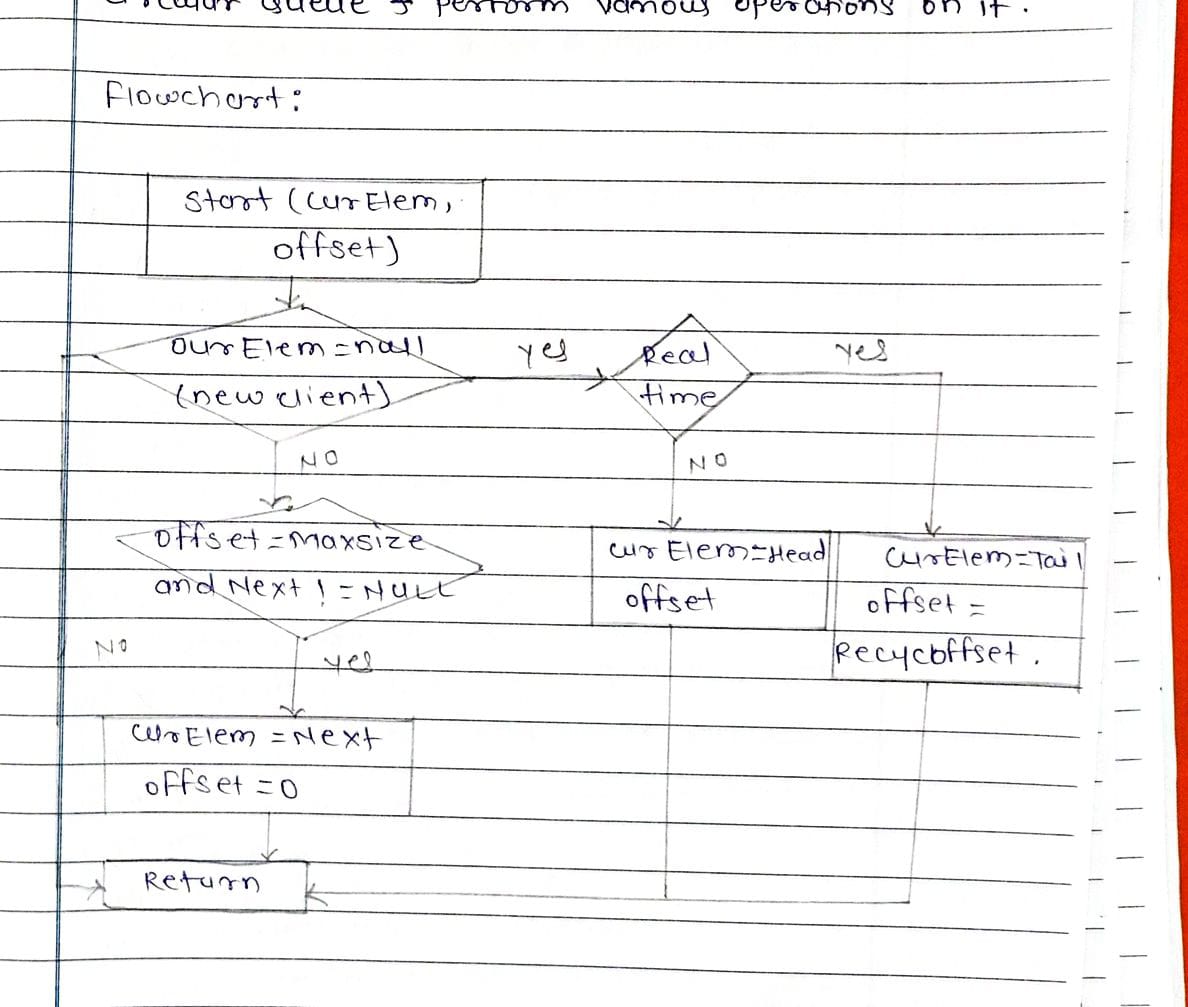 Circular Queue & perform various operations on it.
Flowchart:
Start (curElem,
offset)
ourElem=null
(new client)
yes
Real
time
yes
NO
NO
offset=Maxsize
and Next != NULL
curElem=Head
offset
curElem=Tail
offset =
Recycoffset.
NO
yes
curElem =Next
offset =0
Return